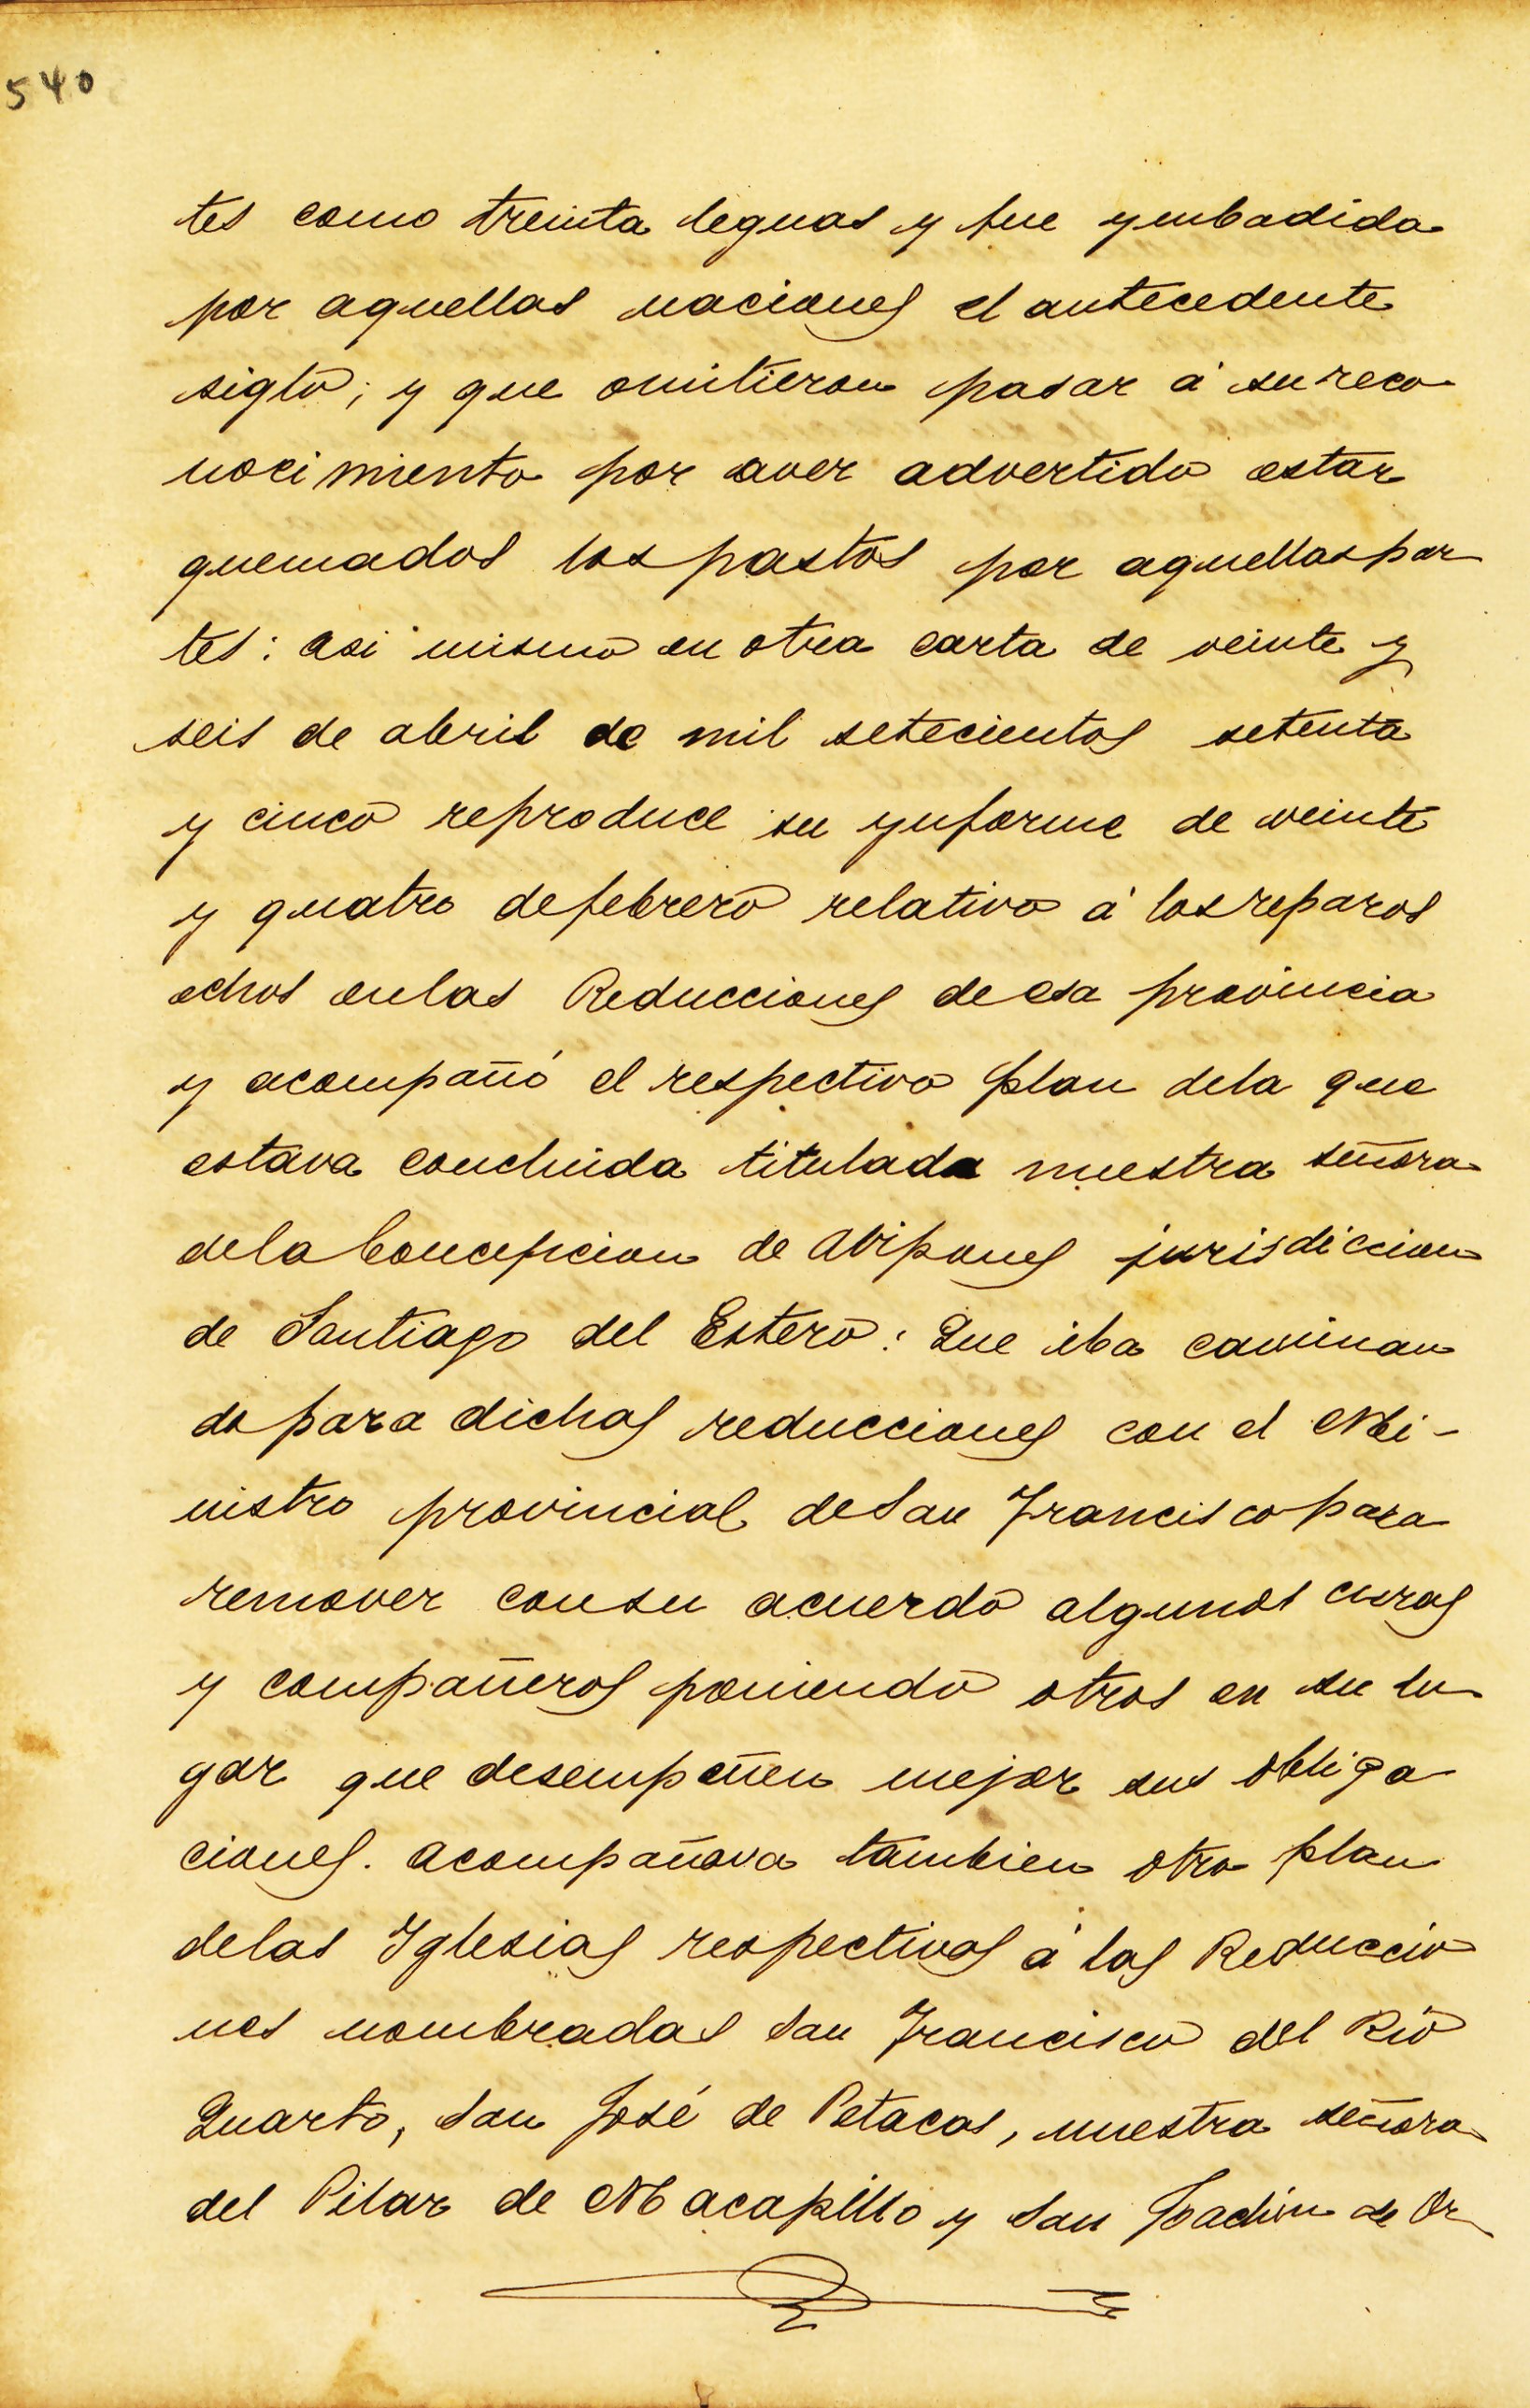 540
tes como treinta leguas y fue ymbadida
por aquellas naciones el antecedente
siglo; y que omitieron pasar á su reco
nocimiento por aver advertido estar
quemados los pastos por aquellas par
tes: asi mismo en otra carta de veinte y
seis de abril de mil setecientos setenta
y cinco reproduce su ynforme de veinte
y quatro de febrero relativo á los reparos
echos en las Reducciones de esa provincia
y acompañó el respectivo plan dela que
estava concluida titulada nuestra señora
dela Concepcion de Abipones jurisdiccion
de Santiago del Estero: Que iba caminan
do para dichas reducciones con el Mi-
nistro provincial de San Francisco para
remover con su acuerdo algunos curas
y compañeros poniendo otros en su lu
gar que desempeñen mejor sus obliga
ciones. acompañava tambien otro plan
delas Yglesias respectivas á las Reduccio
nes nombradas San Francisco del Rio
Quarto, San José de Petacas, nuestra señora
del Pilar de Macapillo y San Joachin de Or